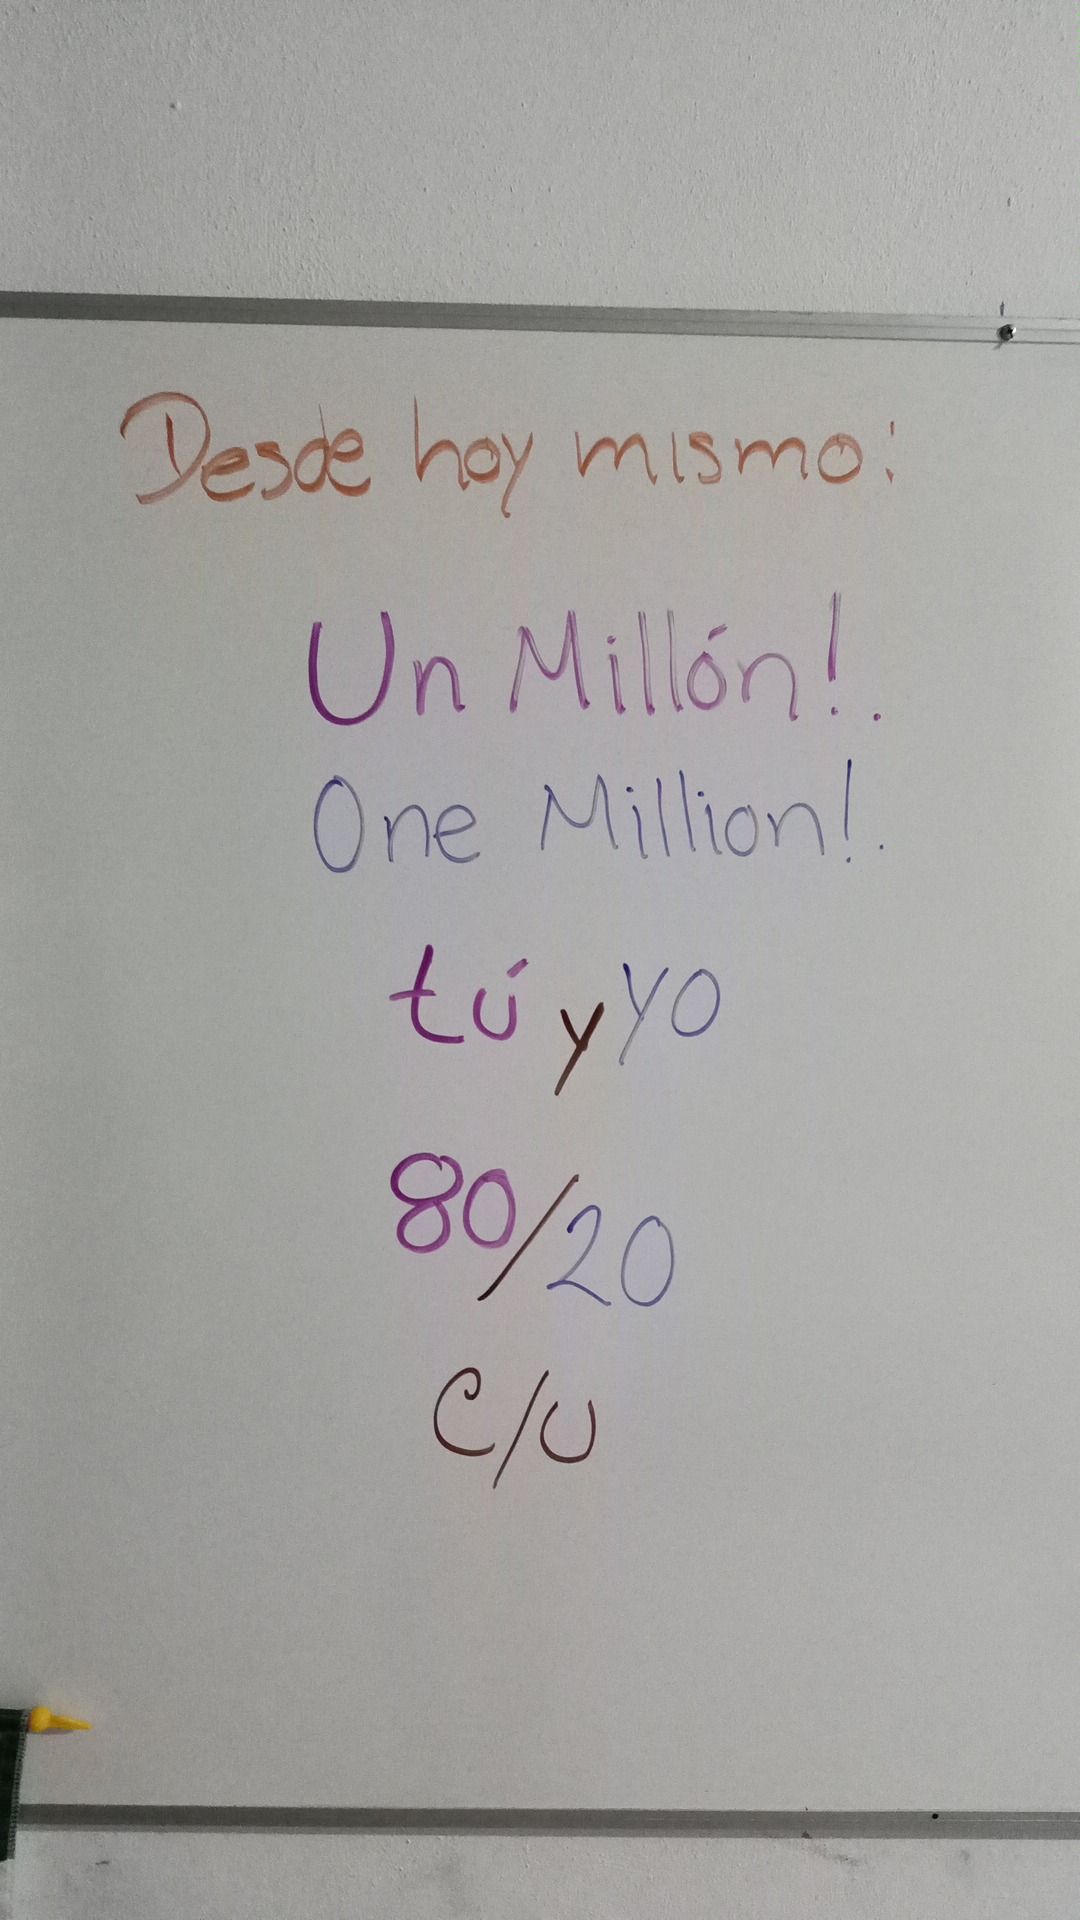 Desde hoy mismo:
Un Millón!.
One Million!.
tú y yo
80/20
C/U